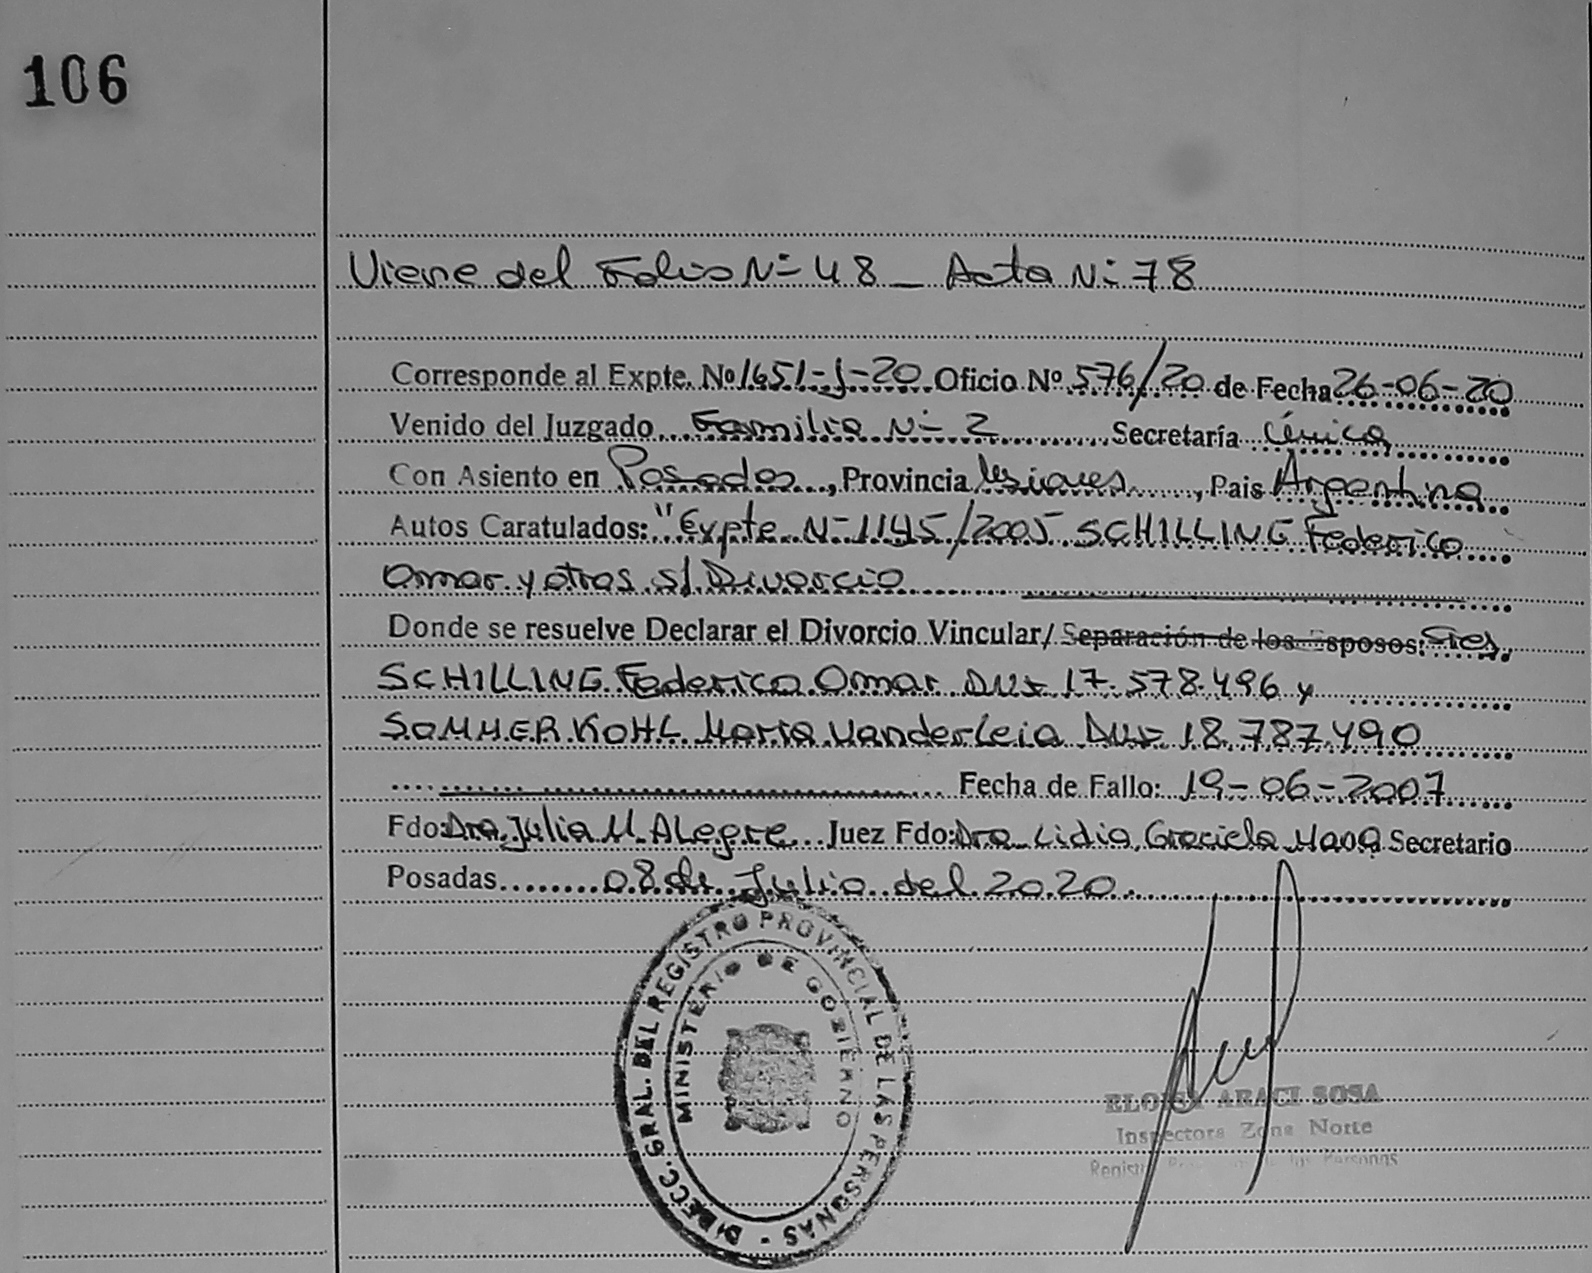 106
Viene del Folio Nº 48 _ Acta Nº 78
Corresponde al Expte. Nº 1651-J-20 Oficio Nº 576/20 de Fecha 26-06-20
Venido del Juzgado Familia Nº 2 Secretaría Única
Con Asiento en Posadas, Provincia Misiones, Pais Argentina
Autos Caratulados: "Expte Nº 1145/2005 SCHILLING Federico
Omar y otros s/ Divorcio
Donde se resuelve Declarar el Divorcio Vincular/ Separación de los Esposos: Sres.
SCHILLING Federico Omar DNI 17.578.496 y
SOMMER KOHL Maria Vanderleia DNI 18.787.490
Fecha de Fallo: 19-06-2007
Fdo: Dra. Julia M. Alegre Juez Fdo: Dra. Lidia Graciela Secretario
Posadas 08 de Julio del 2020.
DIRECC. GRAL. DEL REGISTRO PROVINCIAL DE LAS PERSONAS -
MINISTERIO DE GOBIERNO
ELOISA ARACI SOSA
Inspectora Zona Norte
de las Personas